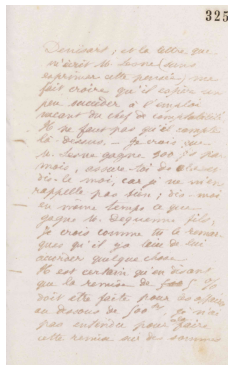 325
Denisart, et la lettre que
m'écrit M. Lesne (sans
exprimer cette pensée) me
fait croire qu'il espère un
peu succéder à l'emploi
vacant du chef de comptabilité
Il ne faut pas qu'il compte
là dessus. — Je crois que
M. Lesne gagne 300 f par
mois, assure toi de
dis le moi, car je ne m'en
rappelle pas bien ; dis moi
en même temps ce que
gagne M. Dequenne fils,
Je crois comme tu le remar
ques qu'il y a lieu de lui
quelque chose
Il est certain qu'en disant
que la remise de
doit être faite pour les affaires
au dessous de 500 f je n'ai
pas entendu pour faire
cette remise sur de sommes